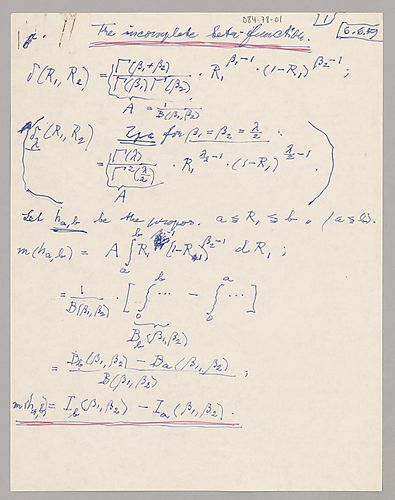 084-78-01
1
6.6.59
The incomplete beta-function.
δ(R₁, R₂) = Γ(β₁+β₂) / Γ(β₁)Γ(β₂) · R₁^(β₁-1) · (1-R₁)^(β₂-1) ;
A = 1 / B(β₁,β₂)
(R₁, R₂) for β₁ = β₂ = λ/2
= Γ(λ) / Γ²(λ/2) · R₁^(λ/2-1) · (1-R₁)^(λ/2-1) .
A
Let h_a,b be the propos. a ≤ R₁ ≤ b . (a ≤ b).
m(h_a,b) = A ∫_a^b R₁^(β₁-1) (1-R₁)^(β₂-1) d R₁ ;
= 1 / B(β₁,β₂) · [ ∫_0^b ... - ∫_0^a ... ]
B_b(β₁,β₂)
= B_b(β₁,β₂) - B_a(β₁,β₂) / B(β₁,β₂) ;
m(h_a,b) = I_b(β₁,β₂) - I_a(β₁,β₂).